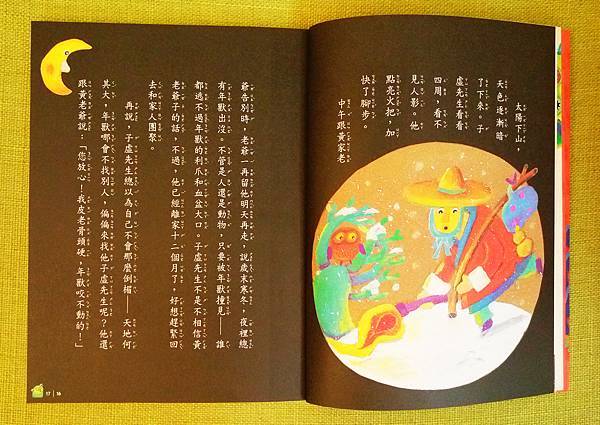 太陽下山，
天色逐漸暗
了下來。子
虛先生看看
四周，看不
見人影。他
點亮火把，加
快了腳步。
中午跟黃家老
爺告別時，老爺一再留他明天再走，說歲末寒冬，夜裡總
有年獸出沒。不管是人還是動物，只要被年獸撞見——誰
都逃不過年獸的利爪和血盆大口。子虛先生不是不相信黃
老爺子的話，不過，他已經離家十二個月了，好想趕緊回
去和家人團聚。
再說，子虛先生總以為自己不會那麼倒楣——天地何
其大，年獸哪會不找別人，偏偏來找他子虛先生呢？他還
跟黃老爺說：「您放心！我皮老骨頭硬，年獸咬不動的！」
17 | 16